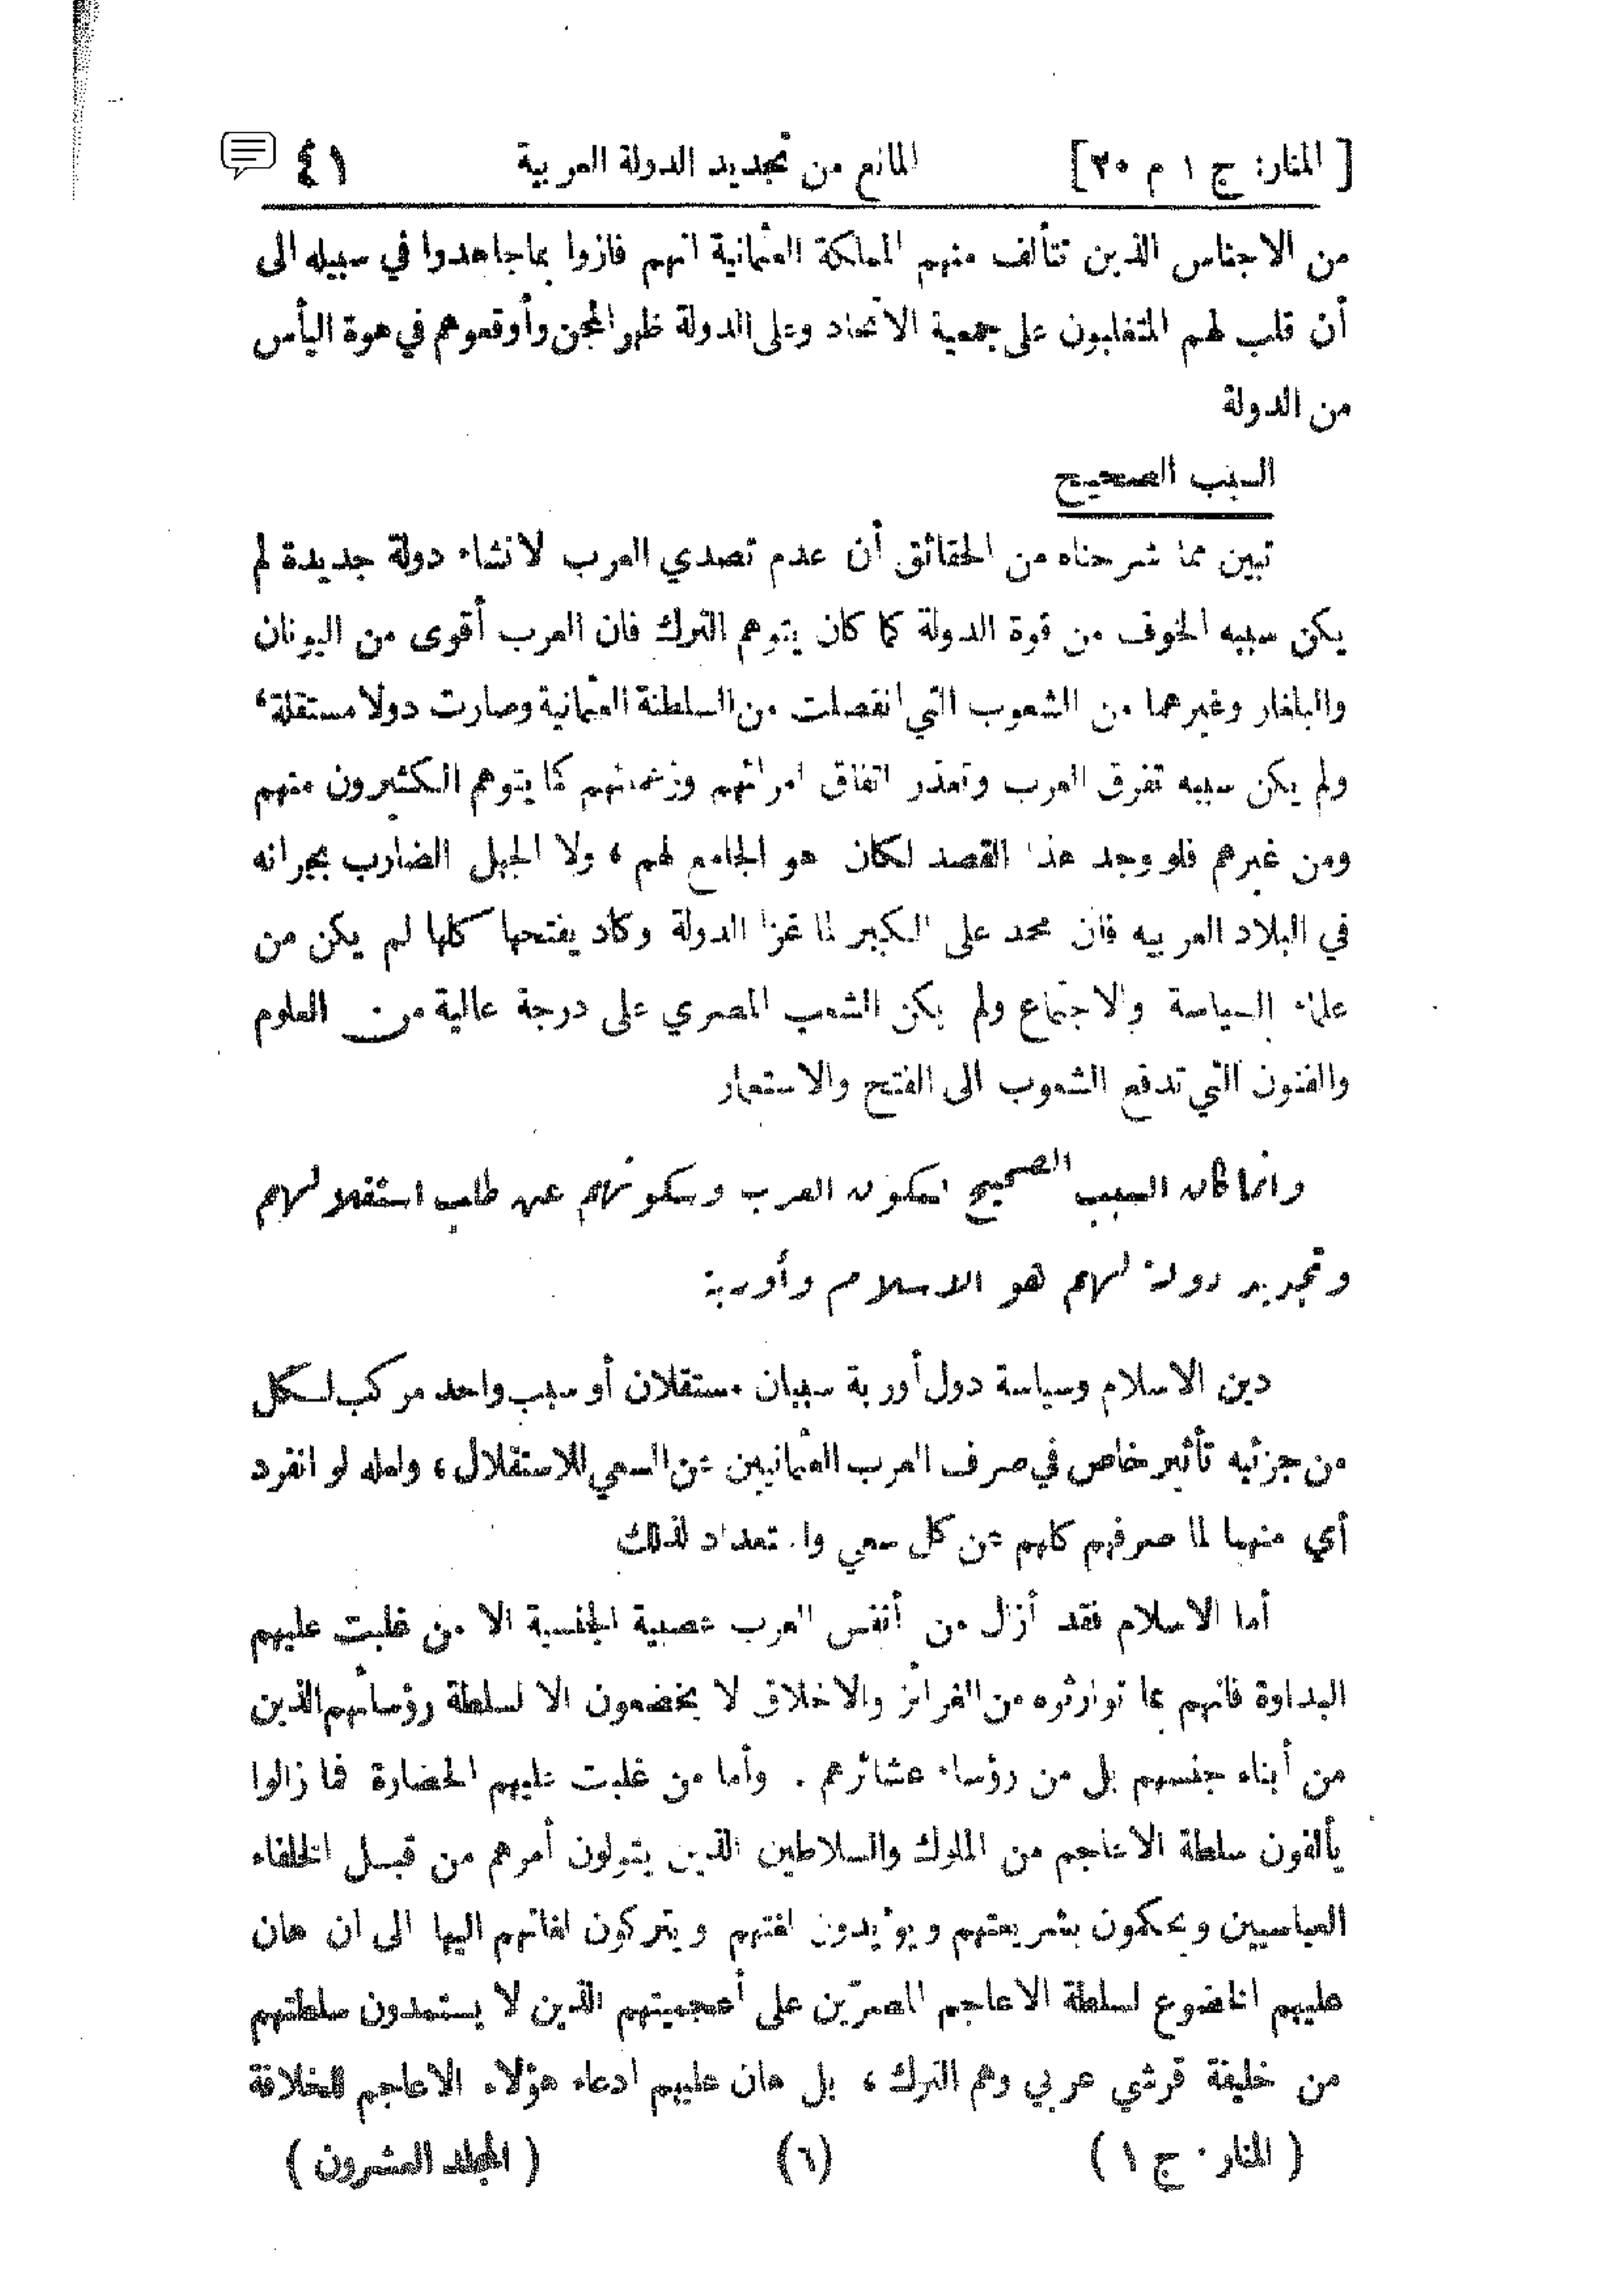 [ المنار: ج ١ م ٢٠] المانع من تجديد الدولة العربية ٤١
من الاجناس الذين تتألف منهم المملكة العثمانية انهم فازوا بما جاهدوا في سبيله الى
أن قلب لهم المتغلبون على جمعية الاتحاد وعلى الدولة ظهر المجن وأوقعوهم في هوة اليأس
من الدولة
السبب الصحيح
تبين مما شرحناه من الحقائق أن عدم تصدي العرب لانشاء دولة جديدة لم
يكن سببه الخوف من قوة الدولة كما كان يتوهم الترك فان العرب أقوى من اليونان
والبلغار وغيرهما من الشعوب التي انفصلت من السلطنة العثمانية وصارت دولا مستقلة،
ولم يكن سببه تفرق العرب وتعذر اتفاق امرائهم وزعمائهم كما يتوهم الكثيرون منهم
ومن غيرهم فلو وجد هذا القصد لكان هو الجامع لهم ، ولا الجهل الضارب بجرانه
في البلاد العربيه فان محمد علي الكبير لما غزا الدولة وكاد يفتحها كلها لم يكن من
علماء السياسة والاجتماع ولم يكن الشعب المصري على درجة عالية من العلوم
والفنون التي تدفع الشعوب الى الفتح والاستعمار
وانما كان السبب الصحيح لسكون العرب وسكوتهم عن طلب استقلالهم
وتجديد دولة لهم هو الاسلام وأوربة
دين الاسلام وسياسة دول أوربة سببان مستقلان أو سبب واحد مركب لكل
من جزئيه تأثير خاص في صرف العرب العثمانيين عن السعي للاستقلال ، ولعله لو انفرد
أي منهما لما صرفهم كلهم عن كل سعي واستعداد لذلك
أما الاسلام فقد أزال من أنفس العرب عصبية الجنسية الا من غلبت عليهم
البداوة فانهم بما توارثوه من الغرائز والاخلاق لا يخضعون الا لسلطة رؤسائهم الذين
من أبناء جنسهم بل من رؤساء عشائرهم . وأما من غلبت عليهم الحضارة فما زالوا
يألفون سلطة الاعاجم من الملوك والسلاطين الذين يتولون أمرهم من قبل الخلفاء
العباسيين ويحكمون بشريعتهم ويؤيدون لغتهم ويتركون لغاتهم اليها الى ان هان
عليهم الخضوع لسلطة الاعاجم المصرّين على أعجميتهم الذين لا يستمدون سلطتهم
من خليفة قرشي عربي وهم الترك ، بل هان عليهم ادعاء هؤلاء الاعاجم للخلافة
( المنار · ج ١ ) (٦) ( المجلد العشرون )